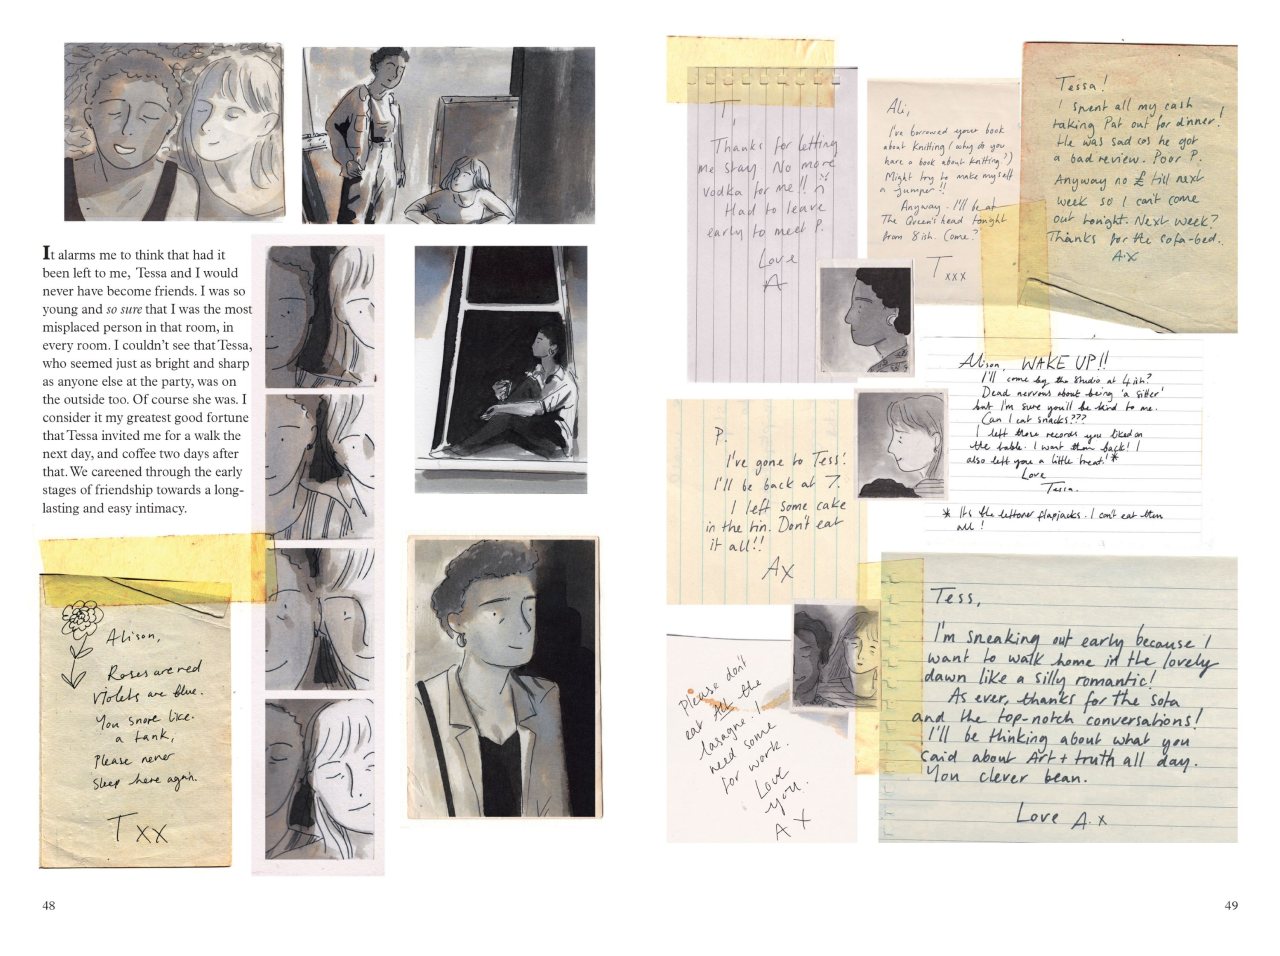 It alarms me to think that had it
been left to me, Tessa and I would
never have become friends. I was so
young and so sure that I was the most
misplaced person in that room, in
every room. I couldn't see that Tessa,
who seemed just as bright and sharp
as anyone else at the party, was on
the outside too. Of course she was. I
consider it my greatest good fortune
that Tessa invited me for a walk the
next day, and coffee two days after
that. We careened through the early
stages of friendship towards a long-
lasting and easy intimacy.
Alison,
Roses are red
Violets are blue.
You snore like
a tank,
Please never
sleep here again.
T xx
48
T,
Thanks for letting
me stay. No more
vodka for me!!
Had to leave
early to meet P.
Love
A
Ali,
I've borrowed your book
about knitting (why do you
have a book about knitting?)
Might try to make myself
a jumper!!
Anyway. I'll be at
The Queen's head tonight
from 8ish. Come?
T xxx
Tessa!
I spent all my cash
taking Pat out for dinner!
He was sad cos he got
a bad review. Poor P.
Anyway no £ till next
week so I can't come
out tonight. Next week?
Thanks for the sofa-bed.
A.X
Alison, WAKE UP!!
I'll come by the studio at 4ish?
Dead nervous about being 'a sitter'
but I'm sure you'll be kind to me.
Can I eat snacks???
I left those records you liked on
the table. I want them back! I
also left you a little treat!*
Love
Tessa.
* It's the leftover flapjacks. I can't eat them
all!
P.
I've gone to Tess!
I'll be back at 7.
I left some cake
in the tin. Don't eat
it all!!
AX
Please don't
eat All the
lasagne! I
need some
for work.
Love
you.
A X
Tess,
I'm sneaking out early because I
want to walk home in the lovely
dawn like a silly romantic!
As ever, thanks for the sofa
and the top-notch conversations!
I'll be thinking about what you
said about Art + truth all day.
You clever bean.
Love A.x
49